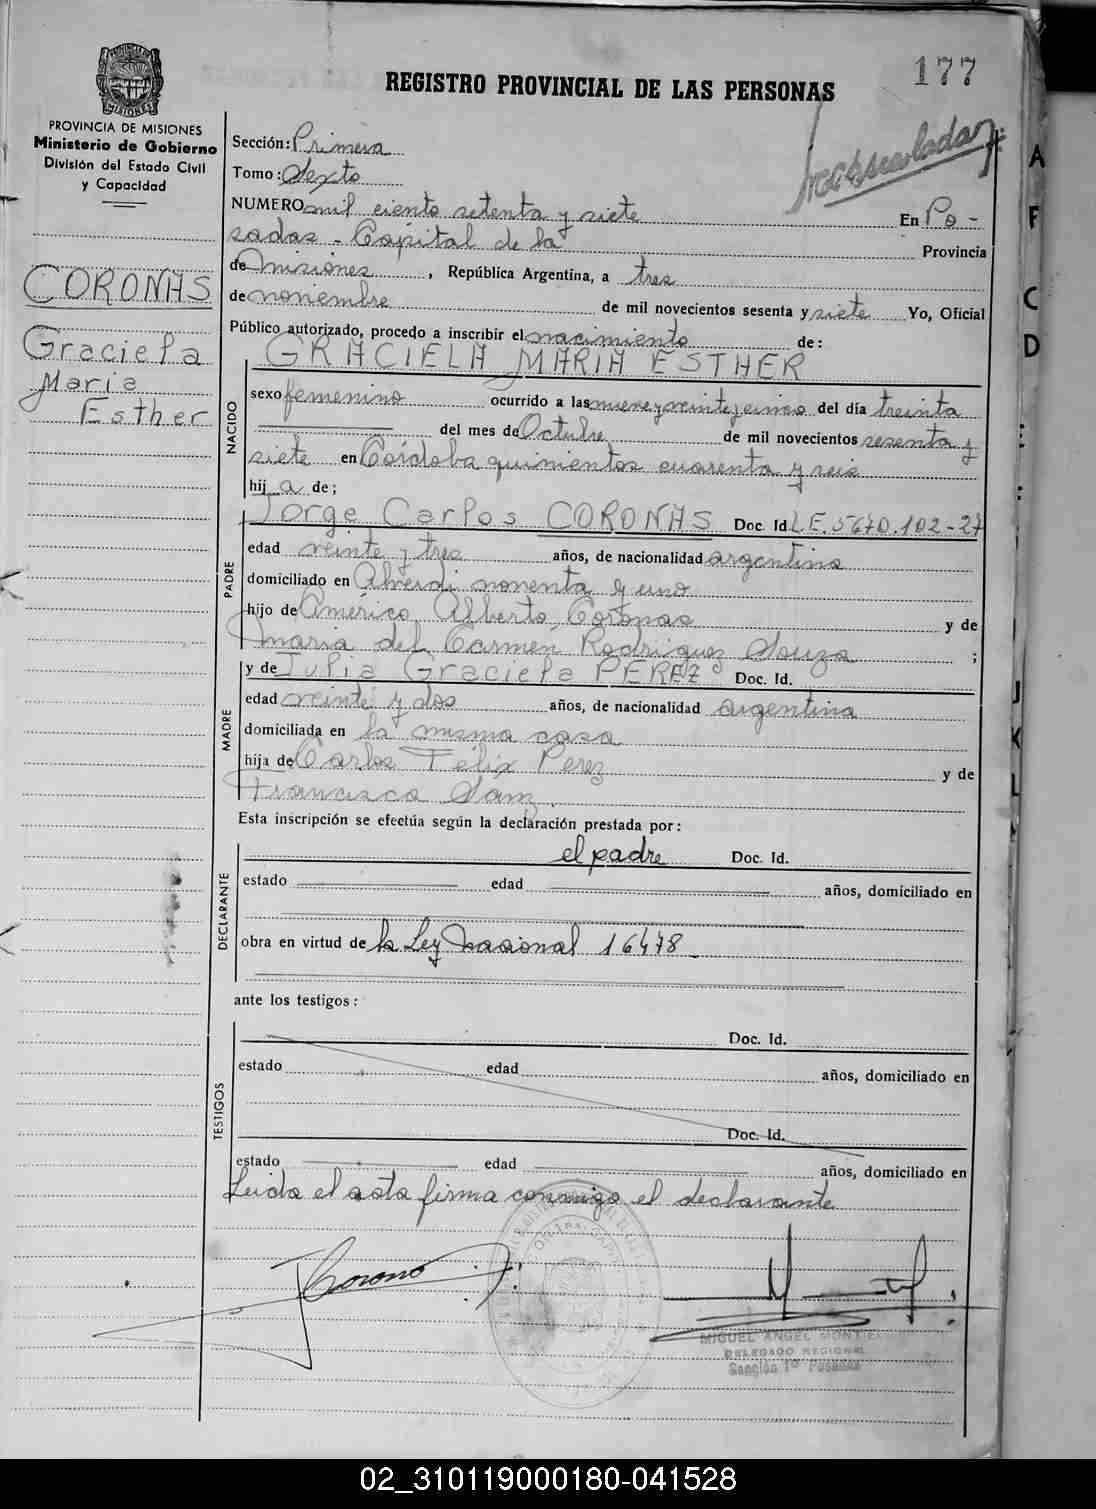 177
REGISTRO PROVINCIAL DE LAS PERSONAS
PROVINCIA DE MISIONES
Ministerio de Gobierno
División del Estado Civil
y Capacidad
CORONAS
Graciela
Maria
Esther
Sección: Primera
Tomo: Sexto
NUMERO mil ciento setenta y siete En Po-
sadas - Capital de la Provincia
de Misiones, República Argentina, a tres
de noviembre de mil novecientos sesenta y siete Yo, Oficial
Público autorizado, procedo a inscribir el nacimiento de:
GRACIELA MARIA ESTHER
NACIDO
sexo femenino ocurrido a las nueve y veinte y cinco del día treinta
del mes de Octubre de mil novecientos sesenta y
siete en Córdoba quinientos cuarenta y seis
hij a de;
PADRE
Jorge Carlos CORONAS Doc. Id L.E. 5670.102-27
edad veinte y tres años, de nacionalidad argentina
domiciliado en Alberdi noventa y uno
hijo de Américo Alberto Coronas y de
Maria del Carmen Rodriguez Souza ;
MADRE
y de Julia Graciela PEREZ Doc. Id.
edad veinte y dos años, de nacionalidad argentina
domiciliada en la misma casa
hija de Carlos Félix Perez y de
Francisca
Esta inscripción se efectúa según la declaración prestada por:
DECLARANTE
el padre Doc. Id.
estado edad años, domiciliado en
obra en virtud de la Ley Nacional 16478
ante los testigos:
TESTIGOS
Doc. Id.
estado edad años, domiciliado en
Doc. Id.
estado edad años, domiciliado en
Leida el acta firma conmigo el declarante
MIGUEL ANGEL
DELEGADO REGIONAL
Sección 1º Posadas
A
F
C
D
E
J
K
L
02_310119000180-041528